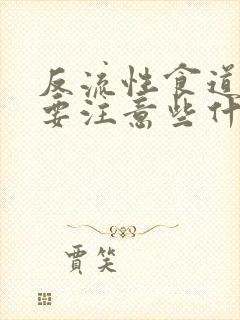 反流性食道
要注意些什
贾笑